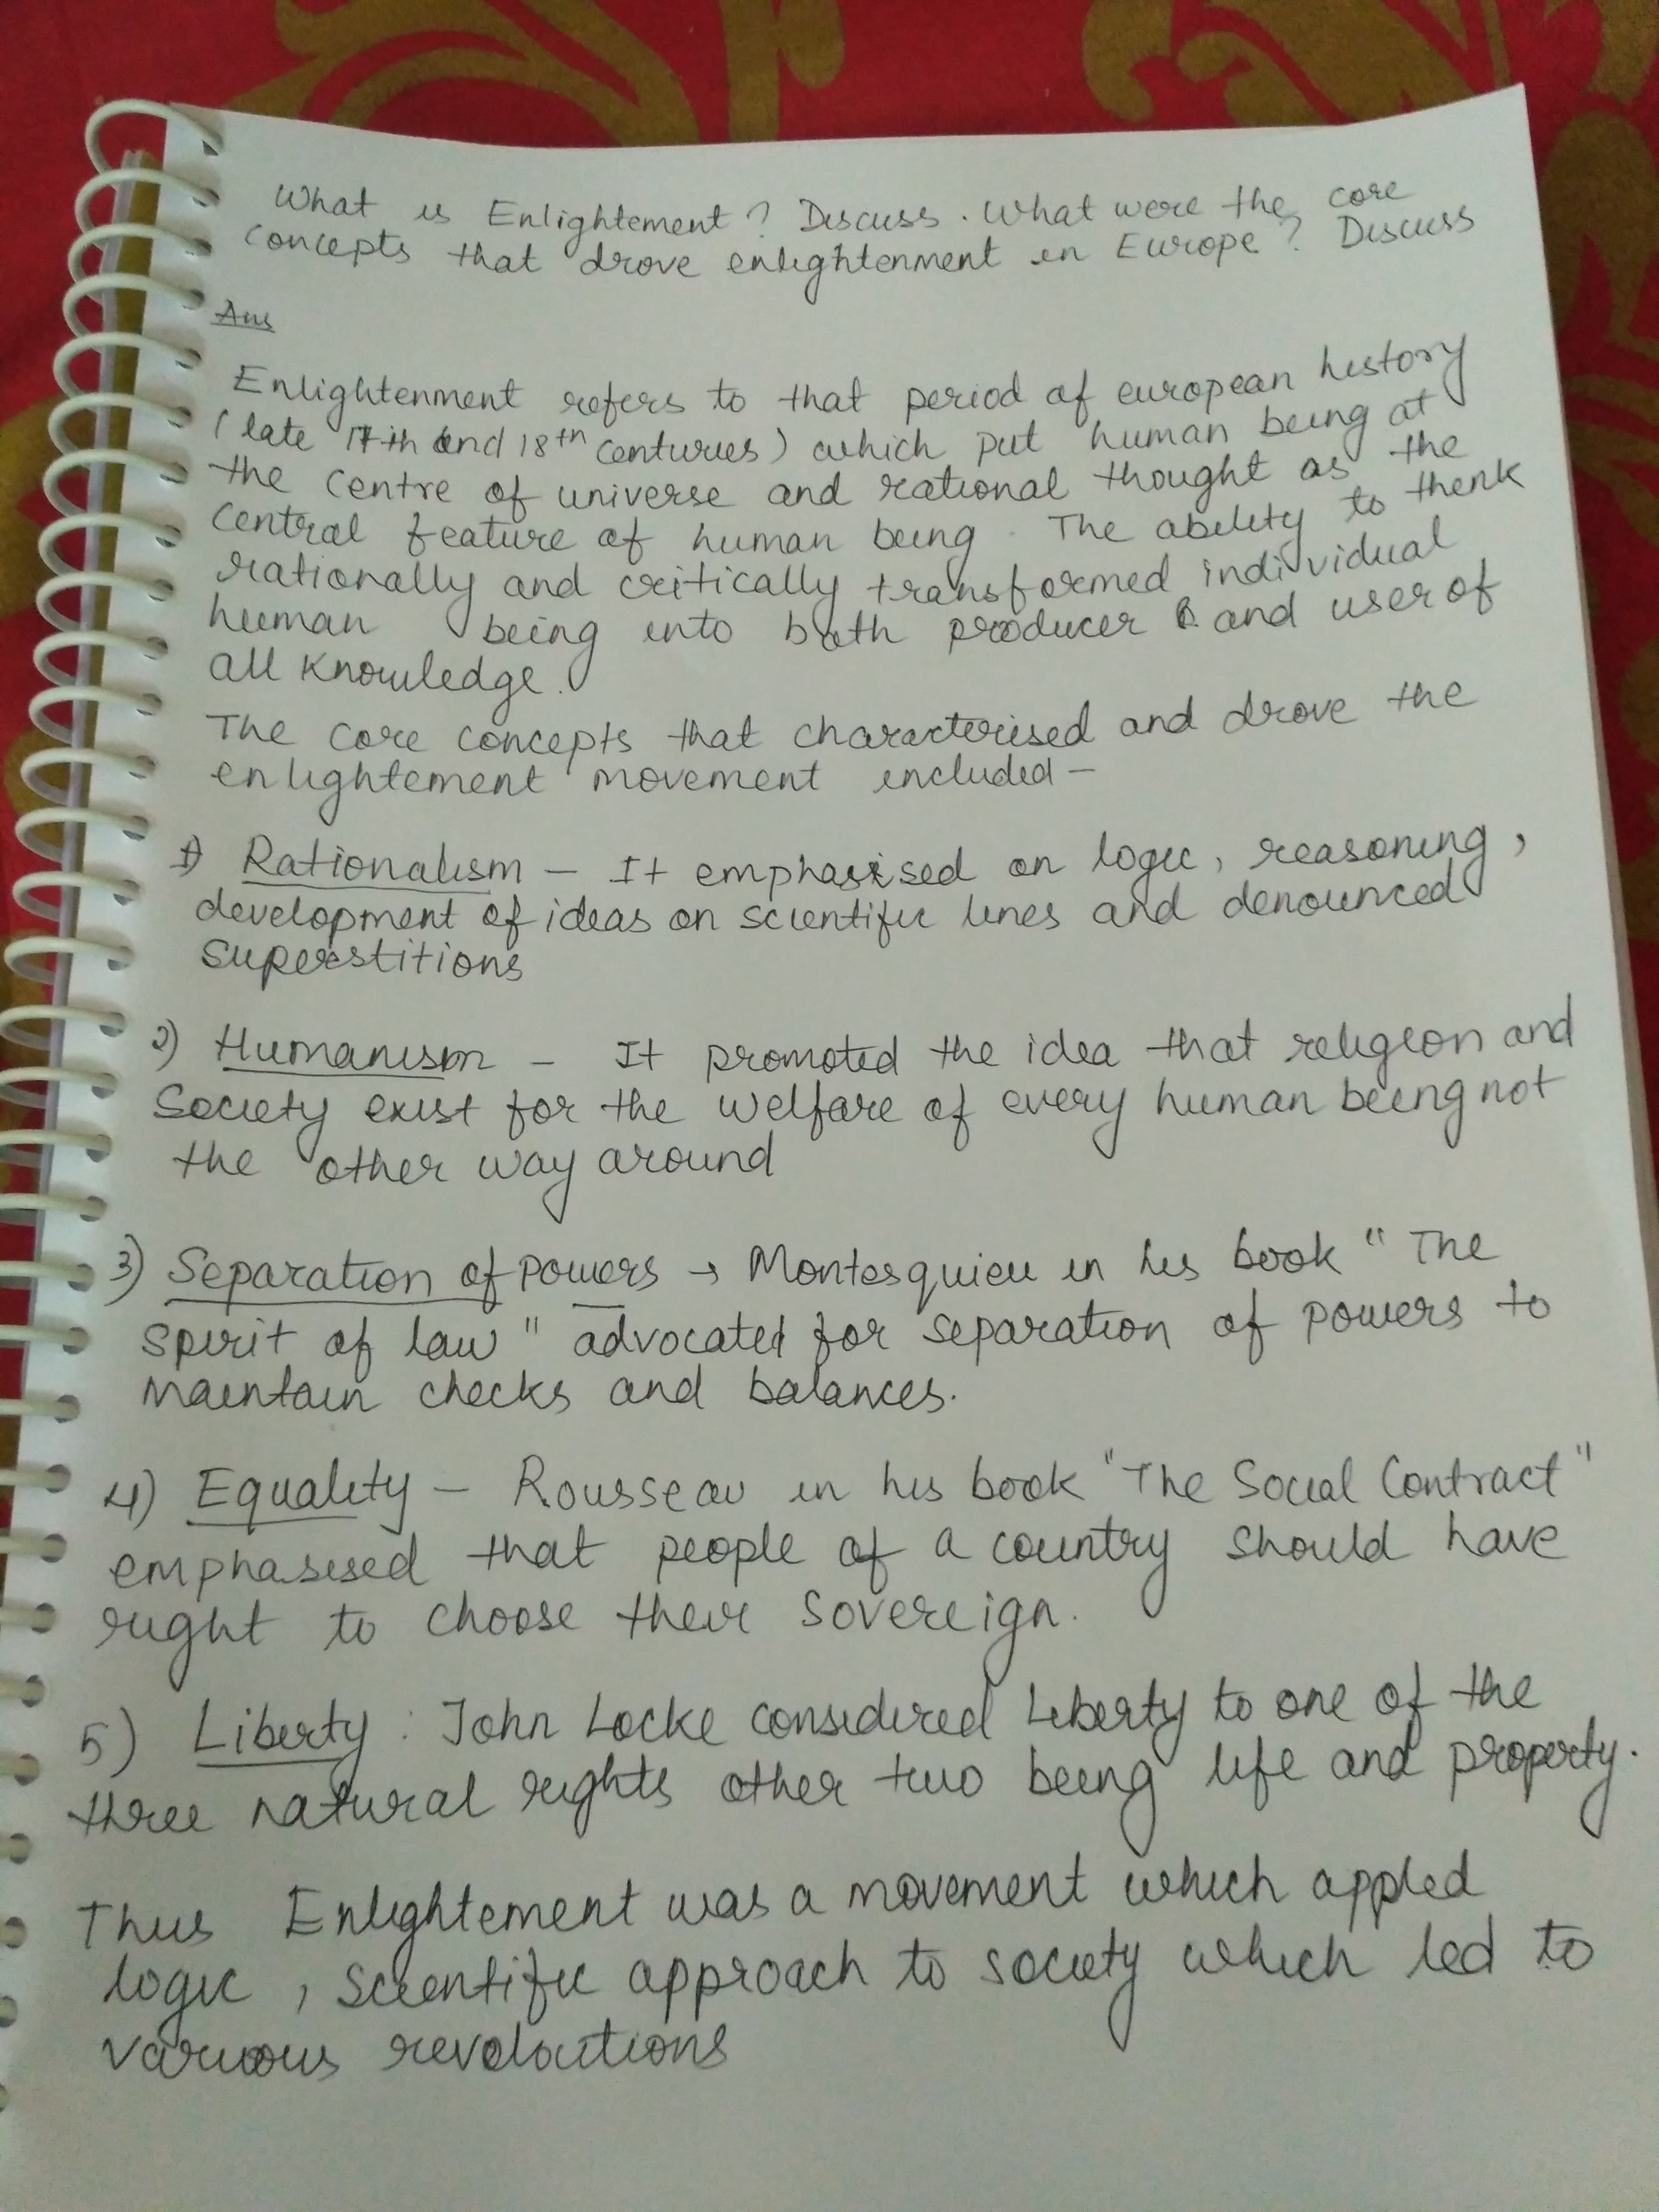 What is Enlightement? Discuss. What were the core
concepts that drove enlightenment in Europe? Discuss
Ans
Enlightenment refers to that period of european history
(late 17th and 18th centuries) which put human being at
the centre of universe and rational thought as the
central feature of human being. The ability to think
rationally and critically transformed individual
human being into both producer and user of
all knowledge.
The core concepts that characterised and drove the
enlightement movement included –
1) Rationalism – It emphasised on logic, reasoning,
development of ideas on scientific lines and denounced
superstitions
2) Humanism – It promoted the idea that religion and
Society exist for the welfare of every human being not
the other way around
3) Separation of powers → Montesquieu in his book "The
spirit of law" advocated for separation of powers to
maintain checks and balances.
4) Equality – Rousseau in his book "The Social Contract"
emphasised that people of a country should have
right to choose their sovereign.
5) Liberty : John Locke considered Liberty to one of the
three natural rights other two being life and property.
Thus Enlightement was a movement which appled
logic, scientific approach to society which led to
various revolutions